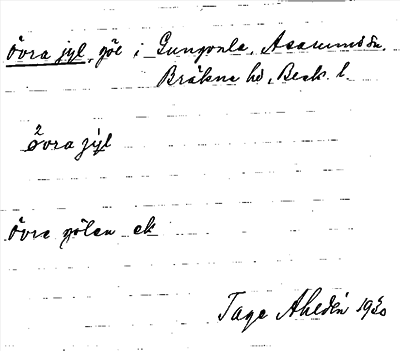 övra jyl, göl i Gungvala, Asarums sn.
Bräkne hd, Blek. l.
övra jyl
övre gölen ek
Tage Ahldén 1930